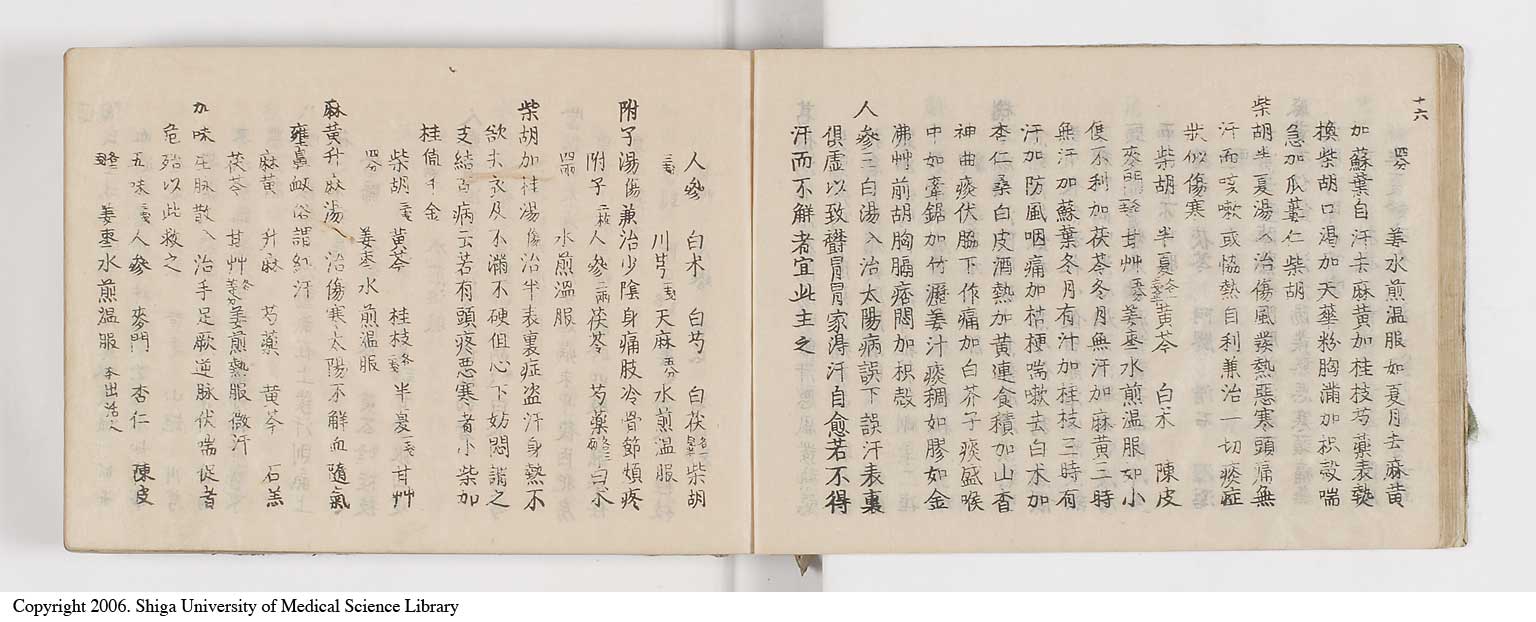 十六
四分 姜水煎温服如夏月去麻黄
加蘇葉自汗去麻黄加桂枝芍薬表熱
換柴胡口渇加天花粉胸滿加枳殻喘
急加瓜蔞仁柴胡
柴胡半夏湯 治傷風發熱惡寒頭痛無
汗而咳嗽或恊熱自利兼治一切痰症
狀似傷寒
柴胡 半夏 黄芩 白朮 陳皮
麥門 甘艸 姜棗水煎温服如小
便不利加茯苓冬月無汗加麻黄三時
無汗加蘇葉冬月有汁加桂枝三時有
汗加防風咽痛加桔梗喘嗽去白朮加
杏仁桑白皮酒熱加黄連食積加山査
神曲痰伏脇下作痛加白芥子痰盛喉
中如牽鋸加竹瀝姜汁痰稠如膠如金
沸艸前胡胸膈痞悶加枳殻
人參三白湯 治太陽病誤下誤汗表裏
俱虚以致欝冒冒家得汗自愈若不得
汗而不解者宜此主之
人參 白朮 白芍 白茯 柴胡
三戔 川芎 天麻 水煎温服
附子湯 傷兼治少陰身痛肢冷骨節煩疼
附子二枚 人參二兩 茯苓 芍薬 白朮
四兩 水煎温服
柴胡加桂湯 傷治半表裏症盗汗身熱不
欲去衣及不滿不硬但心下妨悶謂之
支結百病云若有頭疼悪寒者小柴加
桂備千金
柴胡 黄芩 桂枝 半夏 甘艸
四分 姜棗水煎温服
麻黄升麻湯 治傷寒太陽不解血隨氣
壅鼻衄俗謂紅汗
麻黄 升麻 芍薬 黄芩 石羔
茯苓 甘艸 姜煎熱服微汗
加味生脉散 治手足厥逆脉伏喘促者
危殆以此救之
五味 人參 麥門 杏仁 陳皮
姜棗水煎温服